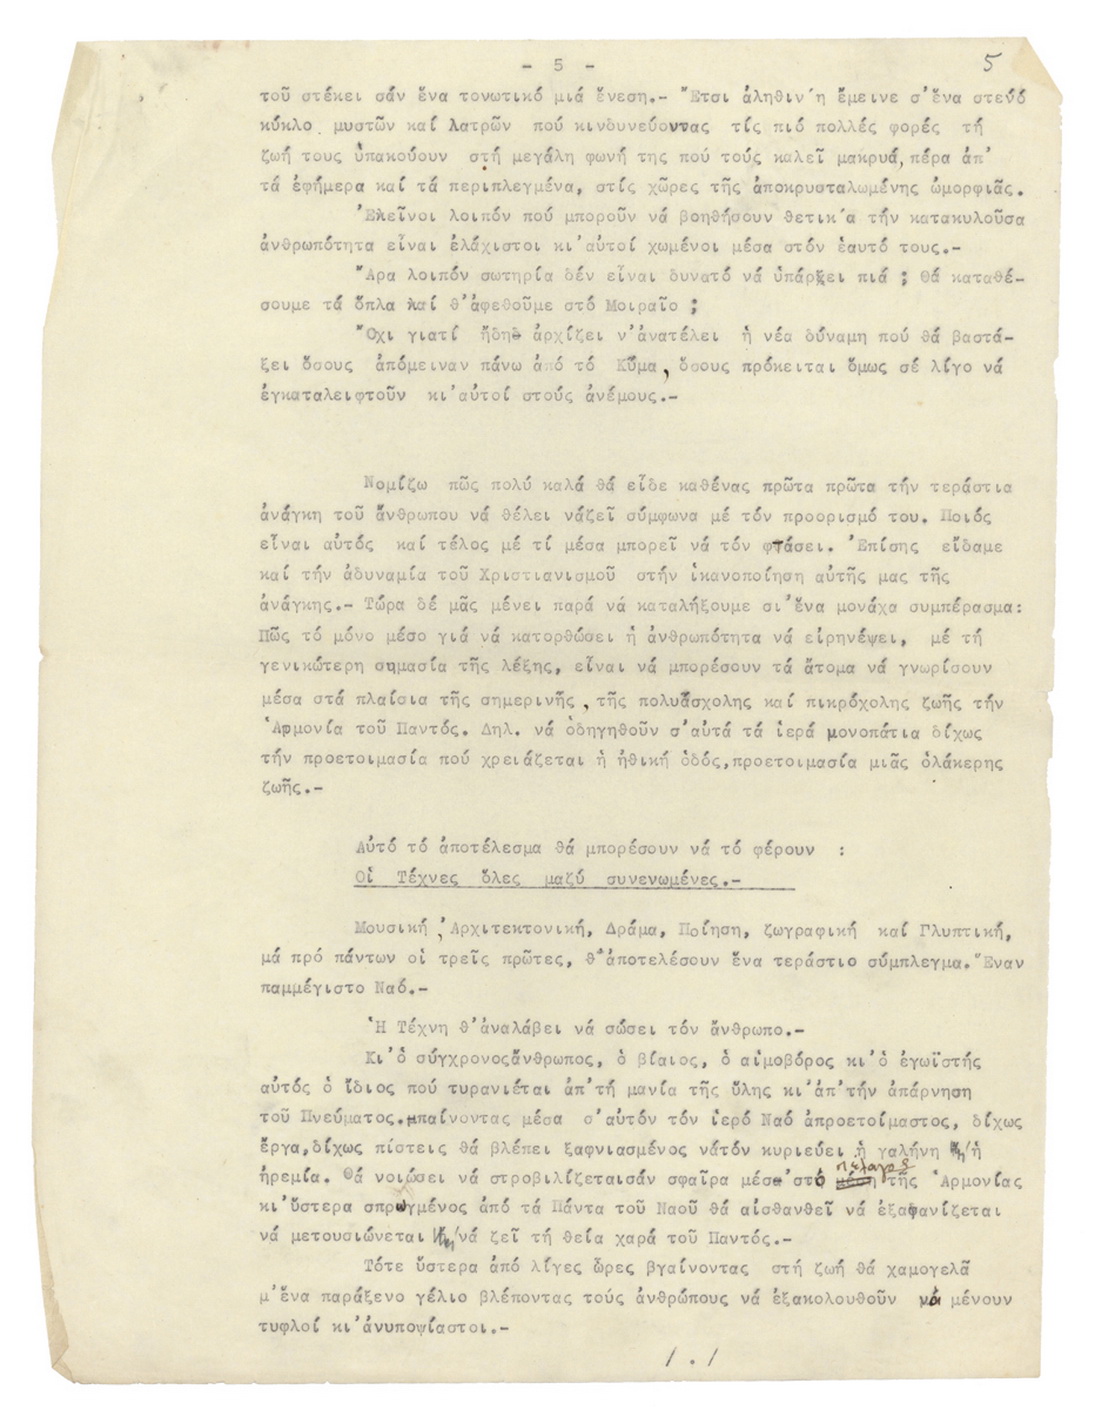 - 5 -
5
τοῦ στέκει σάν ἕνα τονωτικό μιά ἔνεση.- Ἔτσι ἀληθιν΄η ἔμεινε σ'ἕνα στενό
κύκλο μυστῶν καί λατρῶν πού κινδυνεύοντας τίς πιό πολλές φορές τή
ζωή τους ὑπακούουν στή μεγάλη φωνή της πού τούς καλεῖ μακρυά, πέρα ἀπ'
τά ἐφήμερα καί τά περιπλεγμένα, στίς χῶρες τῆς ἀποκρυσταλωμένης ὠμορφιᾶς.
Ἐκεῖνοι λοιπόν πού μποροῦν νά βοηθήσουν θετικ΄α τήν κατακυλοῦσα
ἀνθρωπότητα εἶναι ἐλάχιστοι κι'αὐτοί χωμένοι μέσα στόν ἑαυτό τους.-
Ἄρα λοιπόν σωτηρία δέν εἶναι δυνατό νά ὑπάρξει πιά ; Θά καταθέ-
σουμε τά ὅπλα καί θ'ἀφεθοῦμε στό Μοιραῖο ;
Ὄχι γιατί ἤδη ἀρχίζει ν'ἀνατέλει ἡ νέα δύναμη πού θά βαστά-
ξει ὅσους ἀπόμειναν πάνω ἀπό τό Κῦμα, ὅσους πρόκειται ὅμως σέ λίγο νά
ἐγκαταλειφτοῦν κι'αὐτοί στούς ἀνέμους.-
Νομίζω πῶς πολύ καλά θά εἶδε καθένας πρῶτα πρῶτα τήν τεράστια
ἀνάγκη τοῦ ἄνθρωπου νά θέλει νάζεῖ σύμφωνα μέ τόν προορισμό του. Ποιός
εἶναι αὐτός καί τέλος μέ τί μέσα μπορεῖ νά τόν φτάσει. Ἐπίσης εἴδαμε
καί τήν ἀδυναμία τοῦ Χριστιανισμοῦ στήν ἱκανοποίηση αὐτῆς μας τῆς
ἀνάγκης.- Τώρα δέ μᾶς μένει παρά νά καταλήξουμε σι'ἕνα μονάχα συμπέρασμα:
Πῶς τό μόνο μέσο γιά νά κατορθώσει ἡ ἀνθρωπότητα νά εἰρηνέψει, μέ τή
γενικώτερη σημασία τῆς λέξης, εἶναι νά μπορέσουν τά ἄτομα νά γνωρίσουν
μέσα στά πλαίσια τῆς σημερινῆς , τῆς πολυάσχολης καί πικρόχολης ζωῆς τήν
Ἁρμονία τοῦ Παντός. Δηλ. νά ὁδηγηθοῦν σ'αὐτά τά ἱερά μονοπάτια δίχως
τήν προετοιμασία πού χρειάζεται ἡ ἠθική ὁδός, προετοιμασία μιᾶς ὁλάκερης
ζωῆς.-
Αὐτό τό ἀποτέλεσμα θά μπορέσουν νά τό φέρουν :
Οἱ Τέχνες ὅλες μαζύ συνενωμένες.-
Μουσική, Ἀρχιτεκτονική, Δράμα, Ποίηση, ζωγραφική καί Γλυπτική,
μά πρό πάντων οἱ τρεῖς πρῶτες, θ'ἀποτελέσουν ἕνα τεράστιο σύμπλεγμα. Ἕναν
παμμέγιστο Ναό.-
Ἡ Τέχνη θ'ἀναλάβει νά σώσει τόν ἄνθρωπο.-
Κι'ὁ σύγχρονοςἄνθρωπος, ὁ βίαιος, ὁ αἱμοβόρος κι'ὁ ἐγωϊστής
αὐτός ὁ ἴδιος πού τυρανιέται ἀπ'τή μανία τῆς ὕλης κι'ἀπ'τήν ἀπάρνηση
τοῦ Πνεύματος.μπαίνοντας μέσα σ'αὐτόν τόν ἱερό Ναό ἀπροετοίμαστος, δίχως
ἔργα,δίχως πίστεις θά βλέπει ξαφνιασμένος νάτόν κυριεύει ἡ γαλήνη ἡ
ἠρεμία. Θά νοιώσει νά στροβιλίζεταισάν σφαῖρα μέσα στό πέλαγος τῆς Ἁρμονίας
κι'ὕστερα σπρωγμένος ἀπό τά Πάντα τοῦ Ναοῦ θά αἰσθανθεῖ νά ἐξαφανίζεται
νά μετουσιώνεται νά ζεῖ τή θεία χαρά τοῦ Παντός.-
Τότε ὕστερα ἀπό λίγες ὧρες βγαίνοντας στή ζωή θά χαμογελᾶ
μ'ἕνα παράξενο γέλιο βλέποντας τούς ἀνθρώπους νά ἐξακολουθοῦν νά μένουν
τυφλοί κι'ἀνυποψίαστοι.-
/ . /